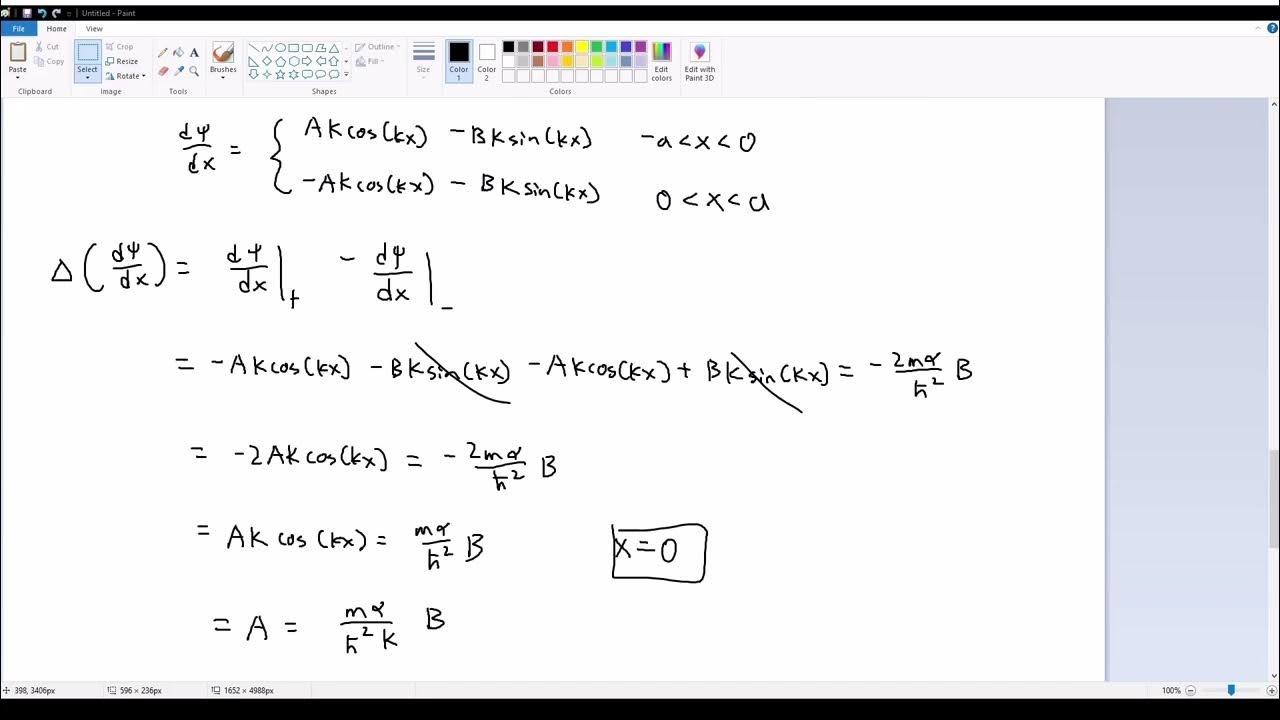 Untitled - Paint
File Home View
Paste Cut Copy Clipboard
Select Crop Resize Rotate Image
Tools
Brushes
Outline Fill Shapes
Size
Color 1 Color 2 Colors
Edit colors
Edit with Paint 3D
dψ/dx = { AKcos(kx) - BKsin(kx) -a < x < 0
-AKcos(kx) - BKsin(kx) 0 < x < a
Δ(dψ/dx) = dψ/dx|₊ - dψ/dx|₋
= -AKcos(kx) - BKsin(kx) - AKcos(kx) + BKsin(kx) = - 2mα/ħ² B
= -2AKcos(kx) = - 2mα/ħ² B
= AKcos(kx) = mα/ħ² B x = 0
= A = mα/ħ²K B
398, 3406px 596 × 236px 1652 × 4988px 100%